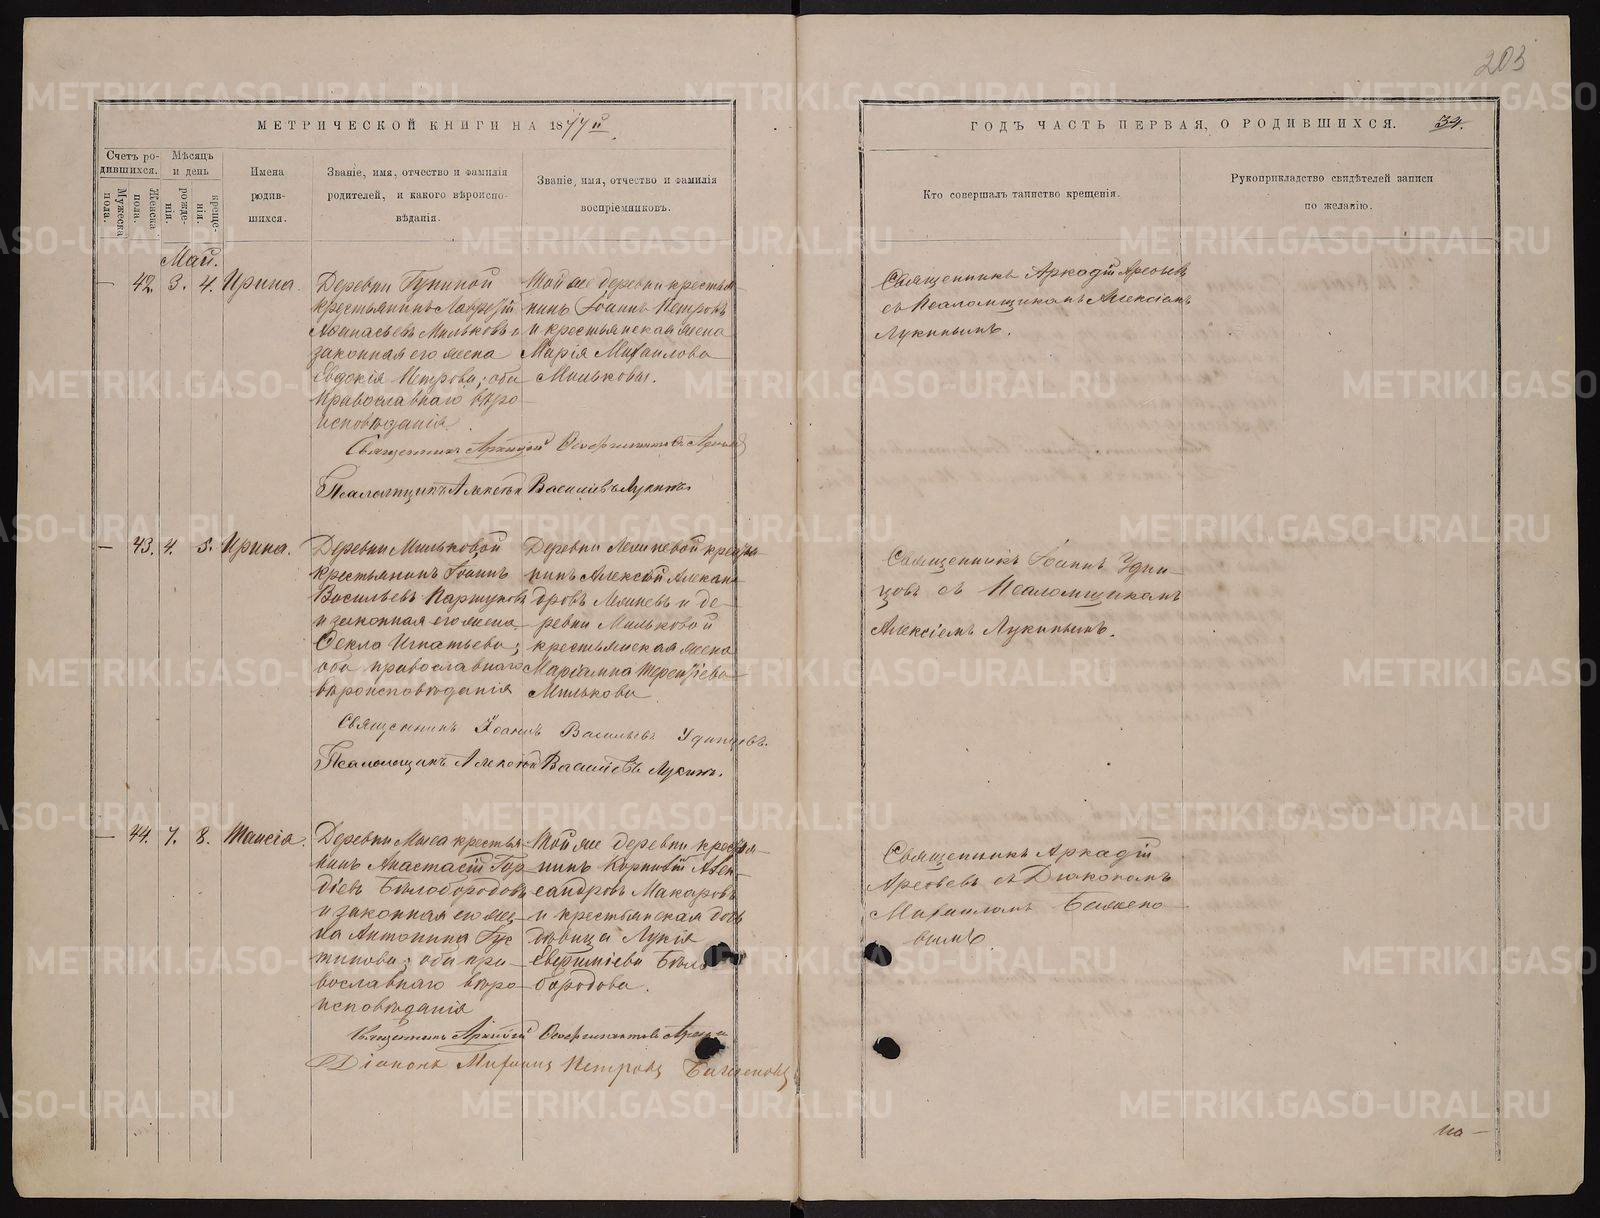 203
МЕТРИЧЕСКОЙ КНИГИ НА 1877й
ГОДЪ ЧАСТЬ ПЕРВАЯ, О РОДИВШИХСЯ. 34.
Счетъ ро-
дившихся.
Мужеска
пола.
Женска
пола.
Мѣсяцъ
и день
рожде-
нія.
креще-
нія.
Имена
родив-
шихся.
Званіе, имя, отчество и фамилія
родителей, и какого вѣроиспо-
вѣданія.
Званіе, имя, отчество и фамилія
воспріемниковъ.
Кто совершалъ таинство крещенія.
Рукоприкладство свидѣтелей записи
по желанію.
Май.
— 42. 3. 4. Ирина.
Деревни
крестьянинъ Лаврентій
Аѳанасьевъ Мильковъ и
законная его жена
Евдокія Петрова; оба
православнаго вѣро-
исповѣданія.
Той же деревни крестья-
нинъ Іоаннъ Петровъ
и крестьянская жена
Марія Михаилова
Мильковы.
Священникъ Аркадій Арефьевъ
съ Псаломщикомъ Алексіемъ
Лукинымъ.
Священникъ Аркадій
Псаломщикъ Алексѣй Васильевъ Лукинъ.
— 43. 4. 5. Ирина.
Деревни Мильковой
крестьянинъ Іоаннъ
Васильевъ Паршуковъ
и законная его жена
Ѳекла Игнатьева;
оба православнаго
вѣроисповѣданія
Деревни крестья-
нинъ Алексѣй Алексан-
дровъ и де-
ревни Мильковой
крестьянская жена
Маріамна Терентіева
Милькова.
Священникъ Іоаннъ Удин-
цовъ съ Псаломщикомъ
Алексіемъ Лукинымъ.
Священникъ Іоаннъ Васильевъ Удинцовъ.
Псаломщикъ Алексѣй Васильевъ Лукинъ.
— 44. 7. 8. Таисія.
Деревни Мыса крестья-
нинъ Анастасій Гор-
діевъ Бѣлобородовъ
и законная его же-
на Антонина Іус-
тинова; оба пра-
вославнаго вѣро-
исповѣданія
Той же деревни крестья-
нинъ Корнилій Алек-
сандровъ Макаровъ
и крестьянская дочь
дѣвица Лукія
Евфиміева Бѣло-
бородова.
Священникъ Аркадій
Арефьевъ съ Діакономъ
Михаиломъ Бажено-
вымъ.
Священникъ Аркадій
Діаконъ Михаилъ Петровъ Баженовъ
На —
METRIKI.GASO-URAL.RU